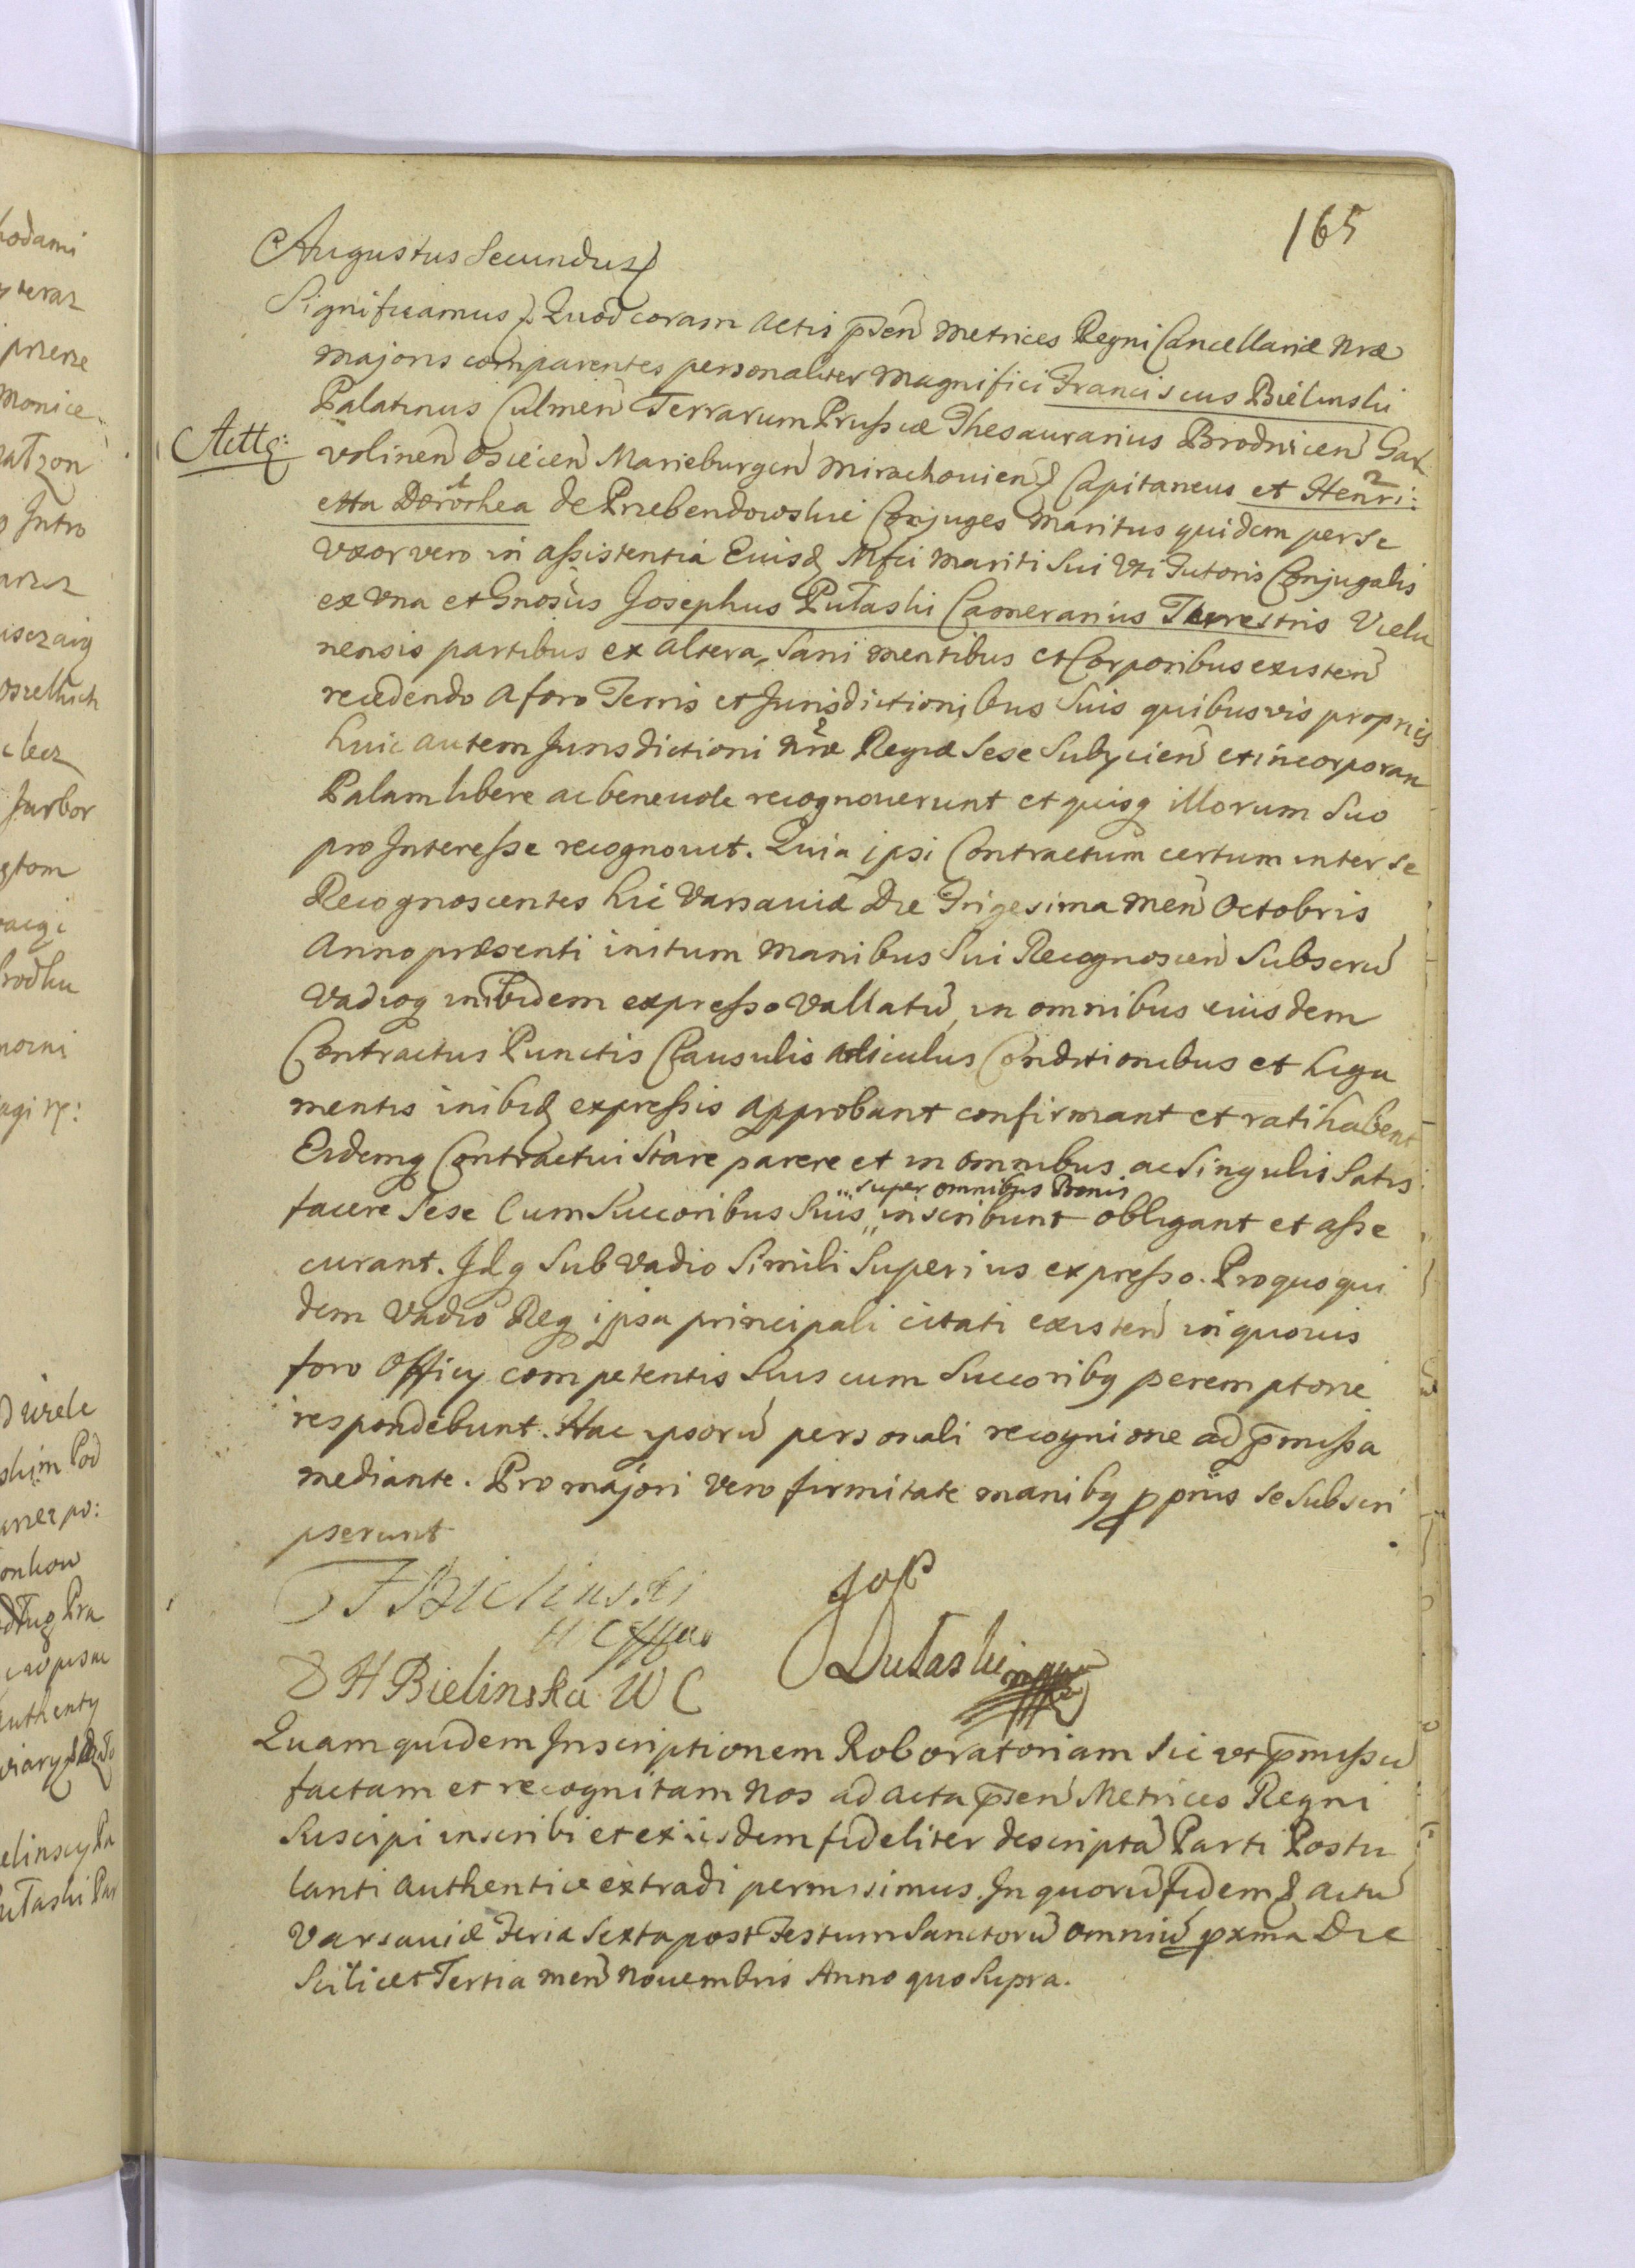 165
Augustus Secundus
Significamus Quod coram Actis p̄sen Metrices Regni Cancellariæ Nræ
Majoris comparentes personaliter Magnifici Franciscus Bielinski
Palatinus Culmen Terrarum Prussiæ Thesaurarius Brodnicen Gar
Actte:
volinen Osiecen Marieburgen Mirachovien Capitaneus et Henri:
etta Dorothea de Przebendowskie Conjuges Maritus quidem per se
Uxor vero in assistentia Eiusd Mfci Mariti Sui Uti Tutoris Conjugalis
ex Una et Gnosus Josephus Pułaski Camerarius Terrestris Vielu
nensis partibus ex Altera, Sani mentibus et Corporibus existen
recedendo a foro Terris et Jurisdictionibus Suis quibusvis proprijs
huic autem Jurisdictioni Nræ Regiæ Sese Subjicien et incorporan
Palam libere ac benevole recognoverunt et quisq illorum Suo
pro Interesse recognovit. Quia ipsi Contractum certum inter se
Recognoscentes hic Varsaviæ Die Trigesima Men Octobris
Anno præsenti initum Manibus Sui Recognoscen Subscrū
Vadioq inibidem expresso Vallatū, in omnibus eiusdem
Contractus Punctis Clausulis Articulis Conditionibus et Liga
mentis inibid expressis approbant confirmant et ratihabent
Eidemq Contractui Stare parere et in omnibus ac Singulis Satis
super omnibus Bonis
facere Sese Cum Succoribus Suis inscribunt obligant et asse
curant. Idq Sub Vadio Simili Superius expresso. Pro quo qui
dem Vadio Req ipsa principali citati existen in quovis
foro Officij competentis Suis cum Succoribq peremptorie
respondebunt. Hac ipsorū personali recognione ad p̄missa
mediante. Pro majori vero firmitate manibq pprijs se Subscri
pserunt
F Bielinski
Jos
Pułaski mpp
D H Bielinska W C
Quam quidem Inscriptionem Roboratoriam Sic ut p̄missū
factam et recognitam Nos ad Acta p̄sen Metrices Regni
Suscipi inscribi et ex iisdem fideliter descriptā Parti Postu
lanti authentice extradi permisimus. In quorū fidem & Actū
Varsaviæ Feria Sexta post Festum Sanctorū Omniū pxma Die
Scilicet Tertia Men Novembris Anno quo Supra.